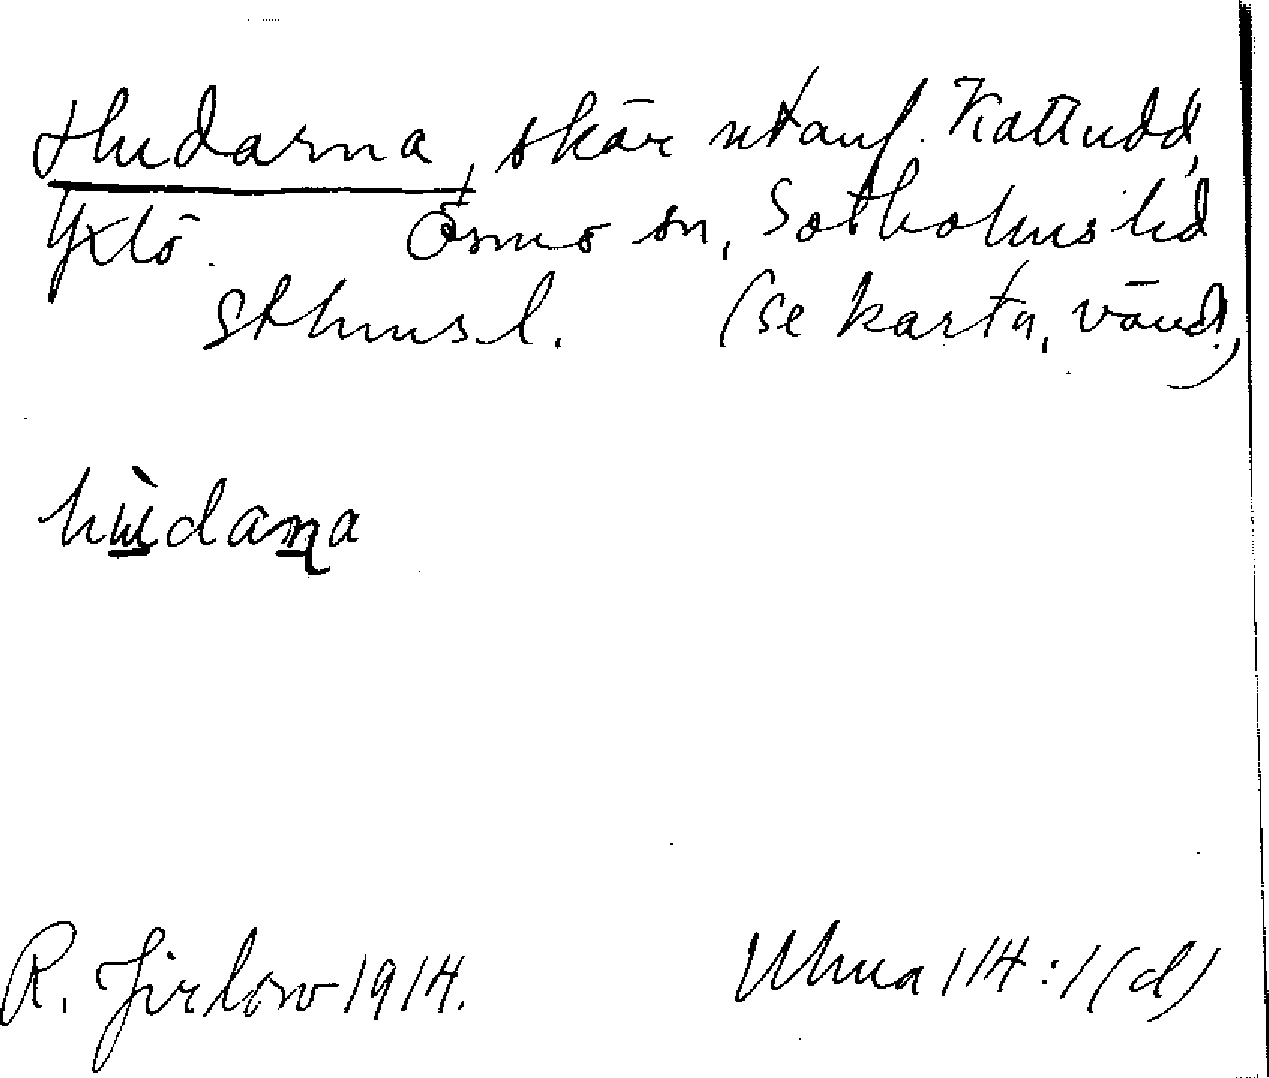 Hudarna, skär utanf. Kattudd,
Yxlö. Ösmo sn, Sotholms hd
Sthms l. (se karta, vänd!)
hɯ̀daɳa
R. Jirlow 1914.
Uhua 114:1(d)